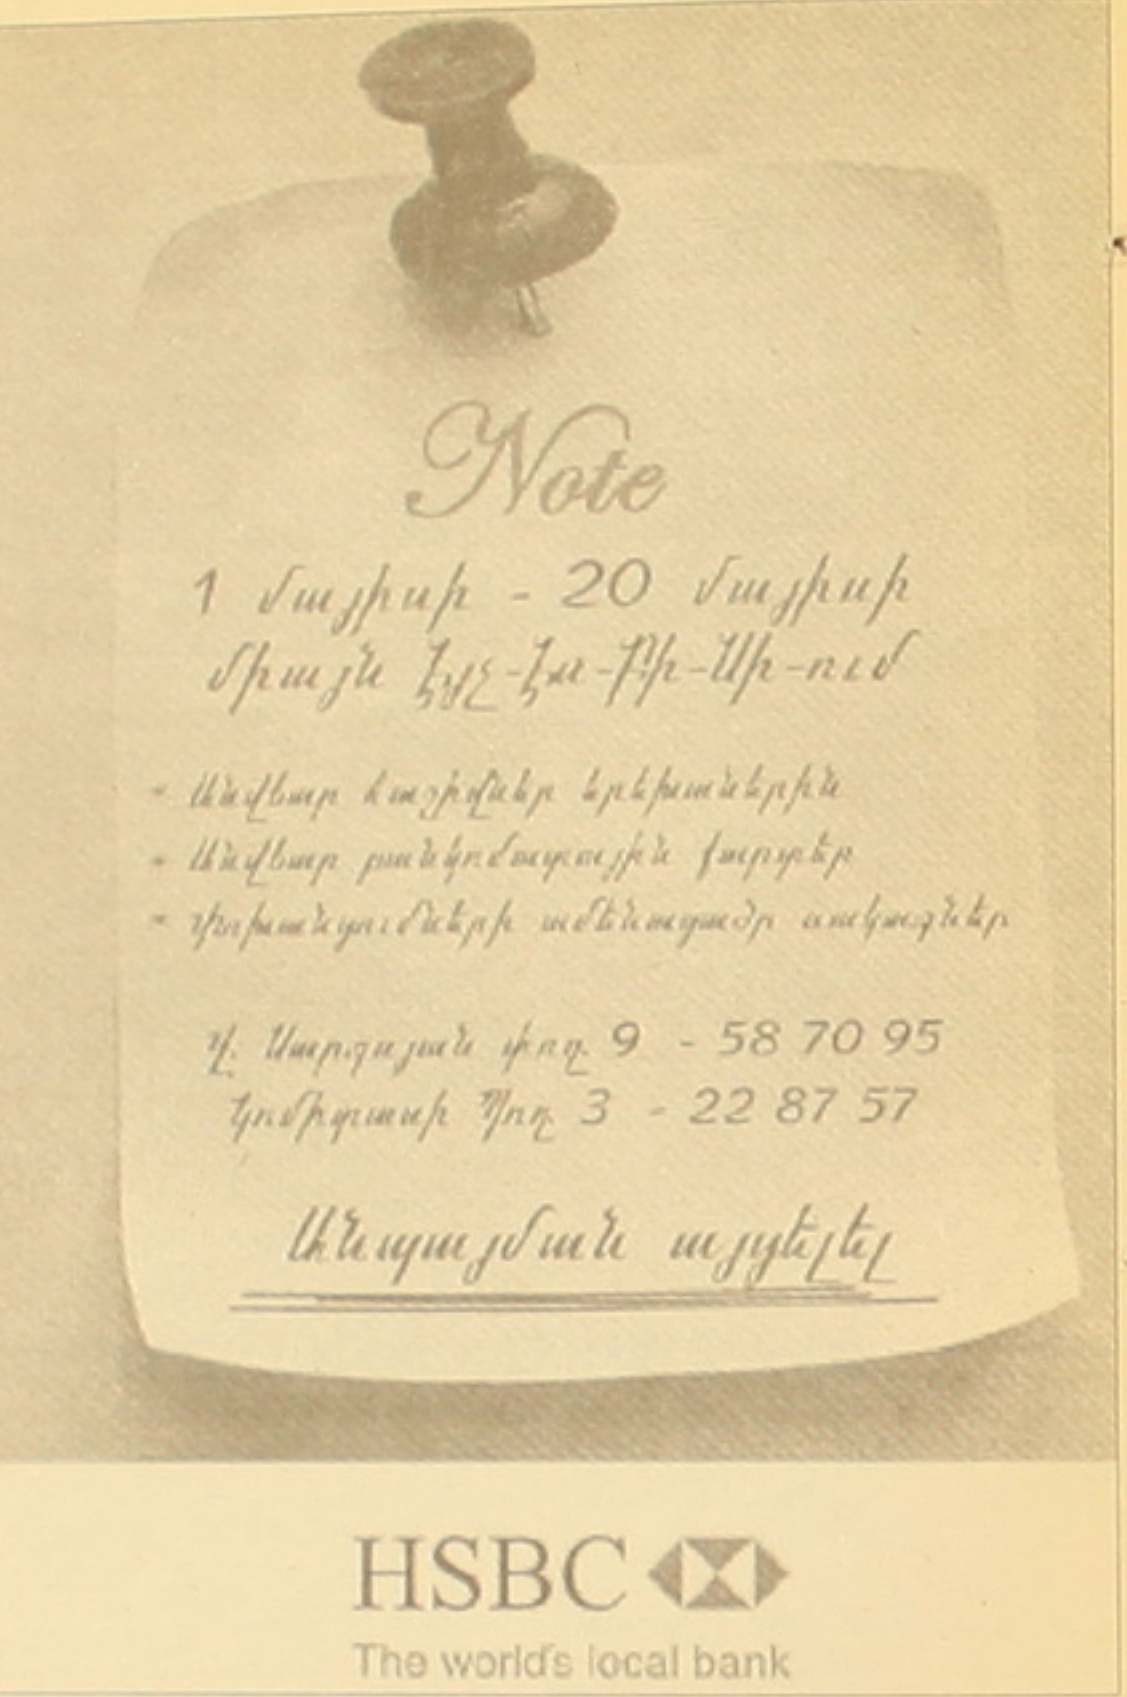 Note
1 մայիսի - 20 մայիսի
միայն Էյչ-Էս-Բի-Սի-ում
- Անվճար հաշիվներ երեխաներին
- Անվճար բանկոմատային քարտեր
- Փոխանցումների ամենացածր սակագներ
Վ. Սարգսյան փող. 9 - 58 70 95
Կոմիտասի Պող. 3 - 22 87 57
Անպայման այցելել
HSBC
The world's local bank